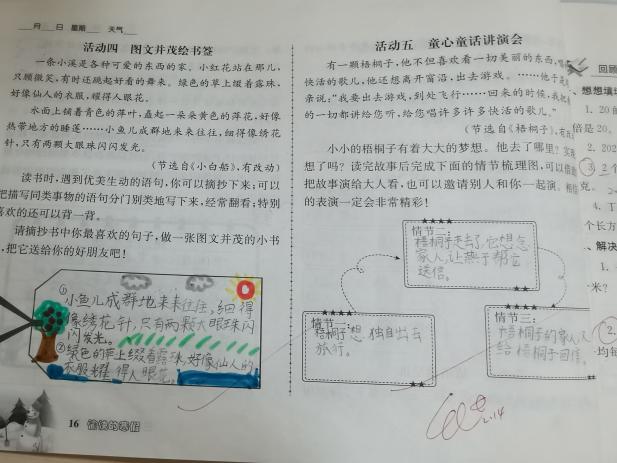 月 日 星期 天气
活动四 图文并茂绘书签
一条小溪是各种可爱的东西的家。小红花站在那儿，
只顾微笑，有时还跳起好看的舞来。绿色的草上缀着露珠，
好像仙人的衣服，耀得人眼花。
水面上铺着青色的萍叶，矗起一朵朵黄色的萍花，好像
热带地方的睡莲……小鱼儿成群地来来往往，细得像绣花
针，只有两颗大眼珠闪闪发光。
（节选自《小白船》，有改动）
读书时，遇到优美生动的语句，你可以摘抄下来；可以
把描写同类事物的语句分门别类地写下来，经常翻看；特别
喜欢的还可以背一背。
请摘抄书中你最喜欢的句子，做一张图文并茂的小书
，把它送给你的好朋友吧！
①
小鱼儿成群地来来往往，细得
像绣花针，只有两颗大眼珠闪
闪发光。
②绿色的草上缀着露珠，好像仙人的
衣服，耀得人眼花。
16 愉快的寒假
活动五 童心童话讲演会
有一颗梧桐子，他不但喜欢看一切美丽的东西，唱
快活的歌儿，他还想离开窗沿，出去游戏。……他于是
亲说：“我要出去游戏，到处飞行……回来的时候，我把
的一切都讲给您听，给您唱许多许多快活的歌儿。”
（节选自《梧桐子》，有改
小小的梧桐子有着大大的梦想。他去了哪里？实
想了吗？读完故事后完成下面的情节梳理图，可以借助
把故事演给大人看，也可以邀请别人和你一起演。相信
的表演一定会非常精彩！
情节二：
梧桐子走去了，它想念
家人，让燕子帮它
送信。
情节一：
梧桐子想独自出去
旅行。
情节三：
梧桐子的家人
给梧桐子回信。
2.14
回顾
想想填填
1. 20
倍是20。
2. 202
3. 2个
克。
4.
个长方
、解决
1.
米？
2.
均每